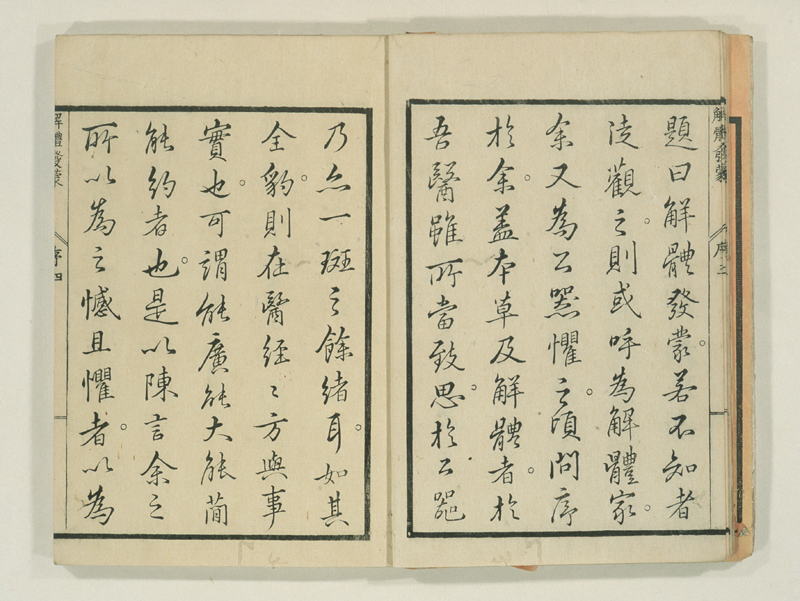 題曰解體發蒙。若不知者
從觀之。則或呼為解體家。
余又為公器懼之。頃問序
於余。蓋本草及解體者。於
吾醫雖所當致思。於公器
乃亦一斑之餘緒耳。如其
全豹。則在醫經經方與事
實也。可謂能廣能大能簡
能約者也。是以陳言余之
所以為之憾且懼者。以為
解體發蒙
序三
解體發蒙
序四